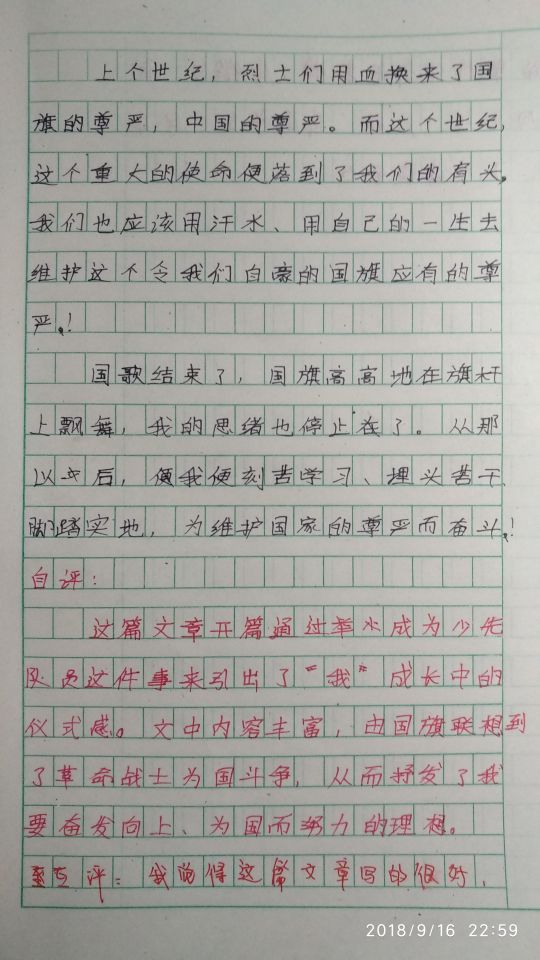 上个世纪，烈士们用血换来了国
旗的尊严，中国的尊严。而这个世纪，
这个重大的使命便落到了我们的有头。
我们也应该用汗水、用自己的一生去
维护这个令我们自豪的国旗应有的尊
严！
国歌结束了，国旗高高地在旗杆
上飘舞，我的思绪也停止在了。从那
以后，我便刻苦学习、埋头苦干、
脚踏实地，为维护国家的尊严而奋斗！
自评：
这篇文章开篇通过成为少先
队员这件事来引出了“我”成长中的
仪式感。文中内容丰富，由国旗联想到
了革命战士为国斗争，从而抒发了我
要奋发向上、为国而努力的理想。
互评：我觉得这篇文章写的很好，
2018/9/16 22:59